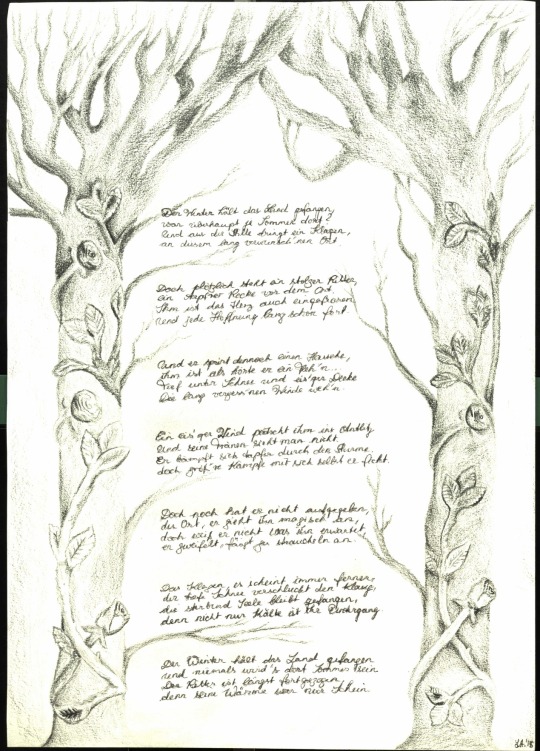 Der Winter hält das Land gefangen,
war überhaupt je Sommer dort?
Und aus der Stille dringt ein Klagen,
an diesem lang verwunsch'nen Ort.
Doch plötzlich steht ein stolzer Ritter,
ein tapf'rer Recke vor dem Ort.
Ihm ist das Herz auch eingefroren
und jede Hoffnung lang schon fort.
Und er spürt dennoch einen Hauch,
ihm ist als hörte er ein Fleh'n...
Tief unter Schnee und eis'ger Decke
Die lang vergess'nen Winde weh'n.
Ein eis'ger Wind peitscht ihm ins Antlitz
Und seine Tränen sieht man nicht
Er kämpft sich tapfer durch den Sturm
doch größ're Kämpfe mit sich selbst er ficht.
Doch noch hat er nicht aufgegeben,
der Ort, er zieht ihn magisch an,
doch weiß er nicht was ihn erwartet
er zweifelt, fängt zu straucheln an.
Das Klagen, es scheint immer ferner,
der tiefe Schnee verschluckt den Klang,
die sterbend Seele bleibt gefangen,
denn nicht nur Kälte ist ihr
Der Winter hält das Land gefangen
und niemals wird's dort Sommer sein
Der Ritter ist längst fortgezogen,
denn seine Wärme war nur Schein.